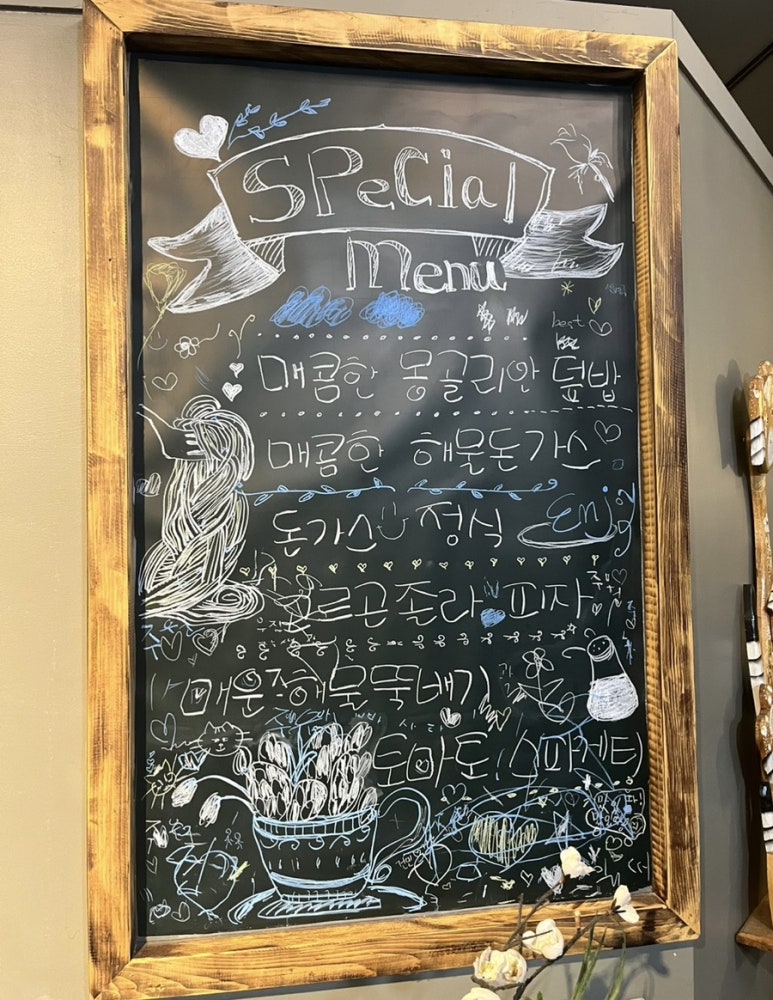 SPeCial
Menu
best
매콤한 몽골리안 덮밥
매콤한 해물돈가스
돈가스 정식
Enjoy
고르곤졸라 피자
매운해물뚝배기
토마토(스파게티)